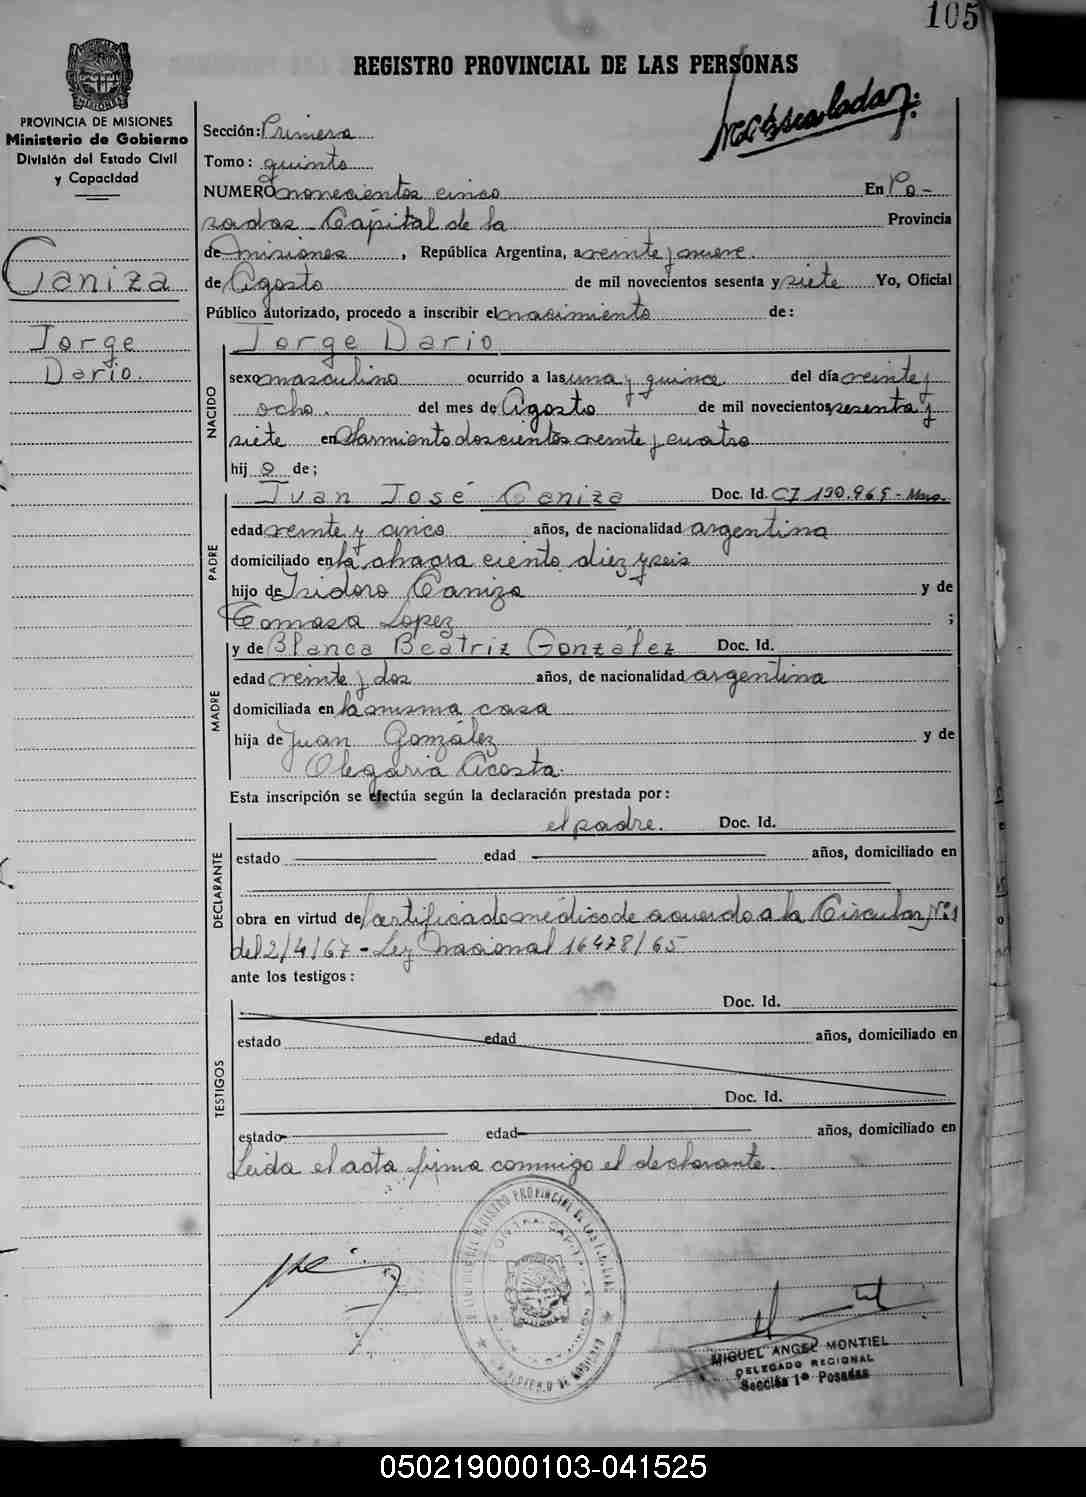 105
REGISTRO PROVINCIAL DE LAS PERSONAS
PROVINCIA DE MISIONES
Ministerio de Gobierno
División del Estado Civil
y Capacidad
Caniza
Jorge
Dario.
Sección: Primera
Tomo: quinto
NUMERO novecientos cinco En Po-
sadas Capital de la Provincia
de Misiones, República Argentina, a veinte y nueve.
de Agosto de mil novecientos sesenta y siete Yo, Oficial
Público autorizado, procedo a inscribir el nacimiento de:
NACIDO
Jorge Dario
sexo masculino ocurrido a las una y quince del día veinte y
ocho. del mes de Agosto de mil novecientos sesenta y
siete en Sarmiento doscientos veinte y cuatro
hij o de;
PADRE
Juan José Caniza Doc. Id. CI 190.969 - Mnes.
edad veinte y cinco años, de nacionalidad argentina
domiciliado en la chacra ciento diez y seis
hijo de Isidoro Caniza y de
Tomasa Lopez ;
MADRE
y de Blanca Beatriz González Doc. Id.
edad veinte y dos años, de nacionalidad argentina
domiciliada en la misma casa
hija de Juan González y de
Olegaria Acosta.
Esta inscripción se efectúa según la declaración prestada por:
DECLARANTE
el padre. Doc. Id.
estado edad años, domiciliado en
obra en virtud de certificado médico de acuerdo a la Circular Nº 1
del 2/4/67 - Ley Nacional 16478/65
ante los testigos:
TESTIGOS
Doc. Id.
estado edad años, domiciliado en
Doc. Id.
estado edad años, domiciliado en
Leida el acta firma conmigo el declarante.
MIGUEL ANGEL MONTIEL
DELEGADO REGIONAL
Sección 1ª Posadas
050219000103-041525